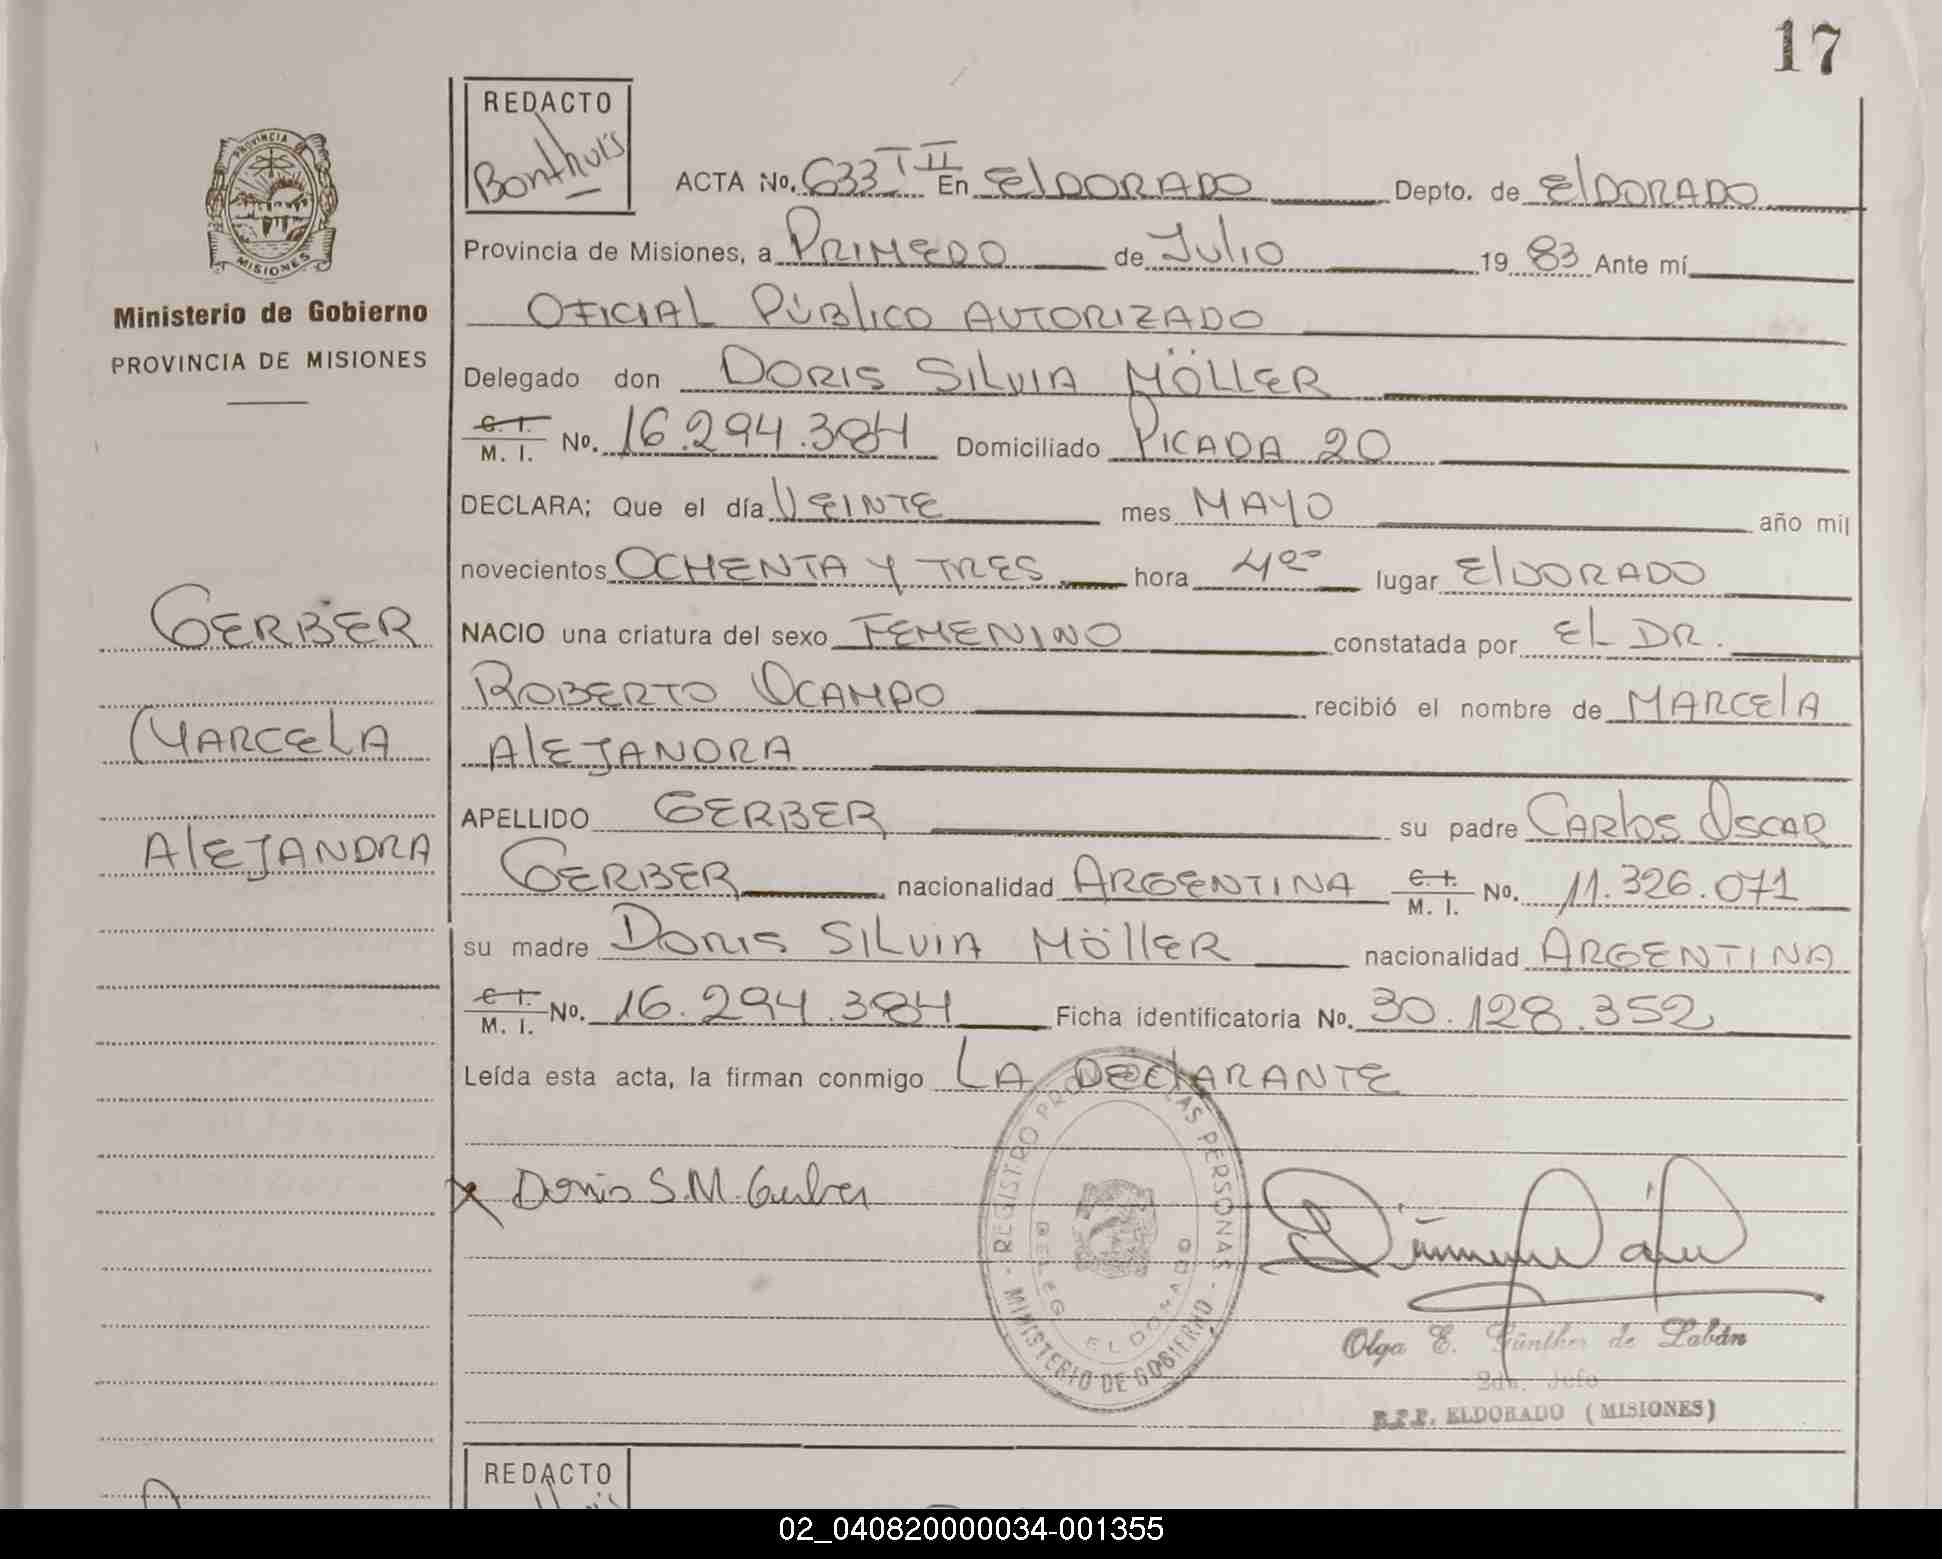 17
REDACTO
Bonthuis
PROVINCIA DE
MISIONES
Ministerio de Gobierno
PROVINCIA DE MISIONES
GERBER
MARCELA
ALEJANDRA
ACTA No. 633 T II En ELDORADO Depto. de ELDORADO
Provincia de Misiones, a PRIMERO de Julio 19 83 Ante mí
OFICIAL PÚBLICO AUTORIZADO
Delegado don DORIS SILVIA MÖLLER
C. I. M. I. No. 16.294.384 Domiciliado PICADA 20
DECLARA; Que el día VEINTE mes MAYO año mil
novecientos OCHENTA Y TRES hora 4°° lugar ELDORADO
NACIO una criatura del sexo FEMENINO constatada por EL DR.
ROBERTO OCAMPO recibió el nombre de MARCELA
ALEJANDRA
APELLIDO GERBER su padre CARLOS OSCAR
GERBER nacionalidad ARGENTINA C. I. M. I. No. 11.326.071
su madre DORIS SILVIA MÖLLER nacionalidad ARGENTINA
C. I. M. I. No. 16.294.384 Ficha identificatoria No. 30.128.352
Leída esta acta, la firman conmigo LA DECLARANTE
x Doris S.M. Gerber
REGISTRO LAS PERSONAS - MINISTERIO DE GOBIERNO -
DELEG ELDORADO
Olga E. Günther de Labán
2da. Jefe
R.P.P. ELDORADO (MISIONES)
REDACTO
02_040820000034-001355